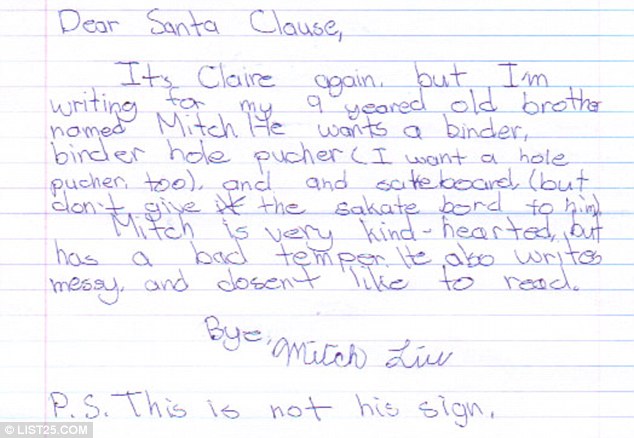 Dear Santa Clause,
Its Claire again. but I'm
writing for my 9 yeared old brother
named Mitch He wants a binder,
binder hole pucher (I want a hole
pucher, too), and and sateboard, (but
don't give it the sakate bord to him)
Mitch is very kind-hearted, but
has a bad temper. He also writes
messy, and dosen't like to read.
Bye,
Mitch Liu
P.S. This is not his sign.
© LIST25.COM